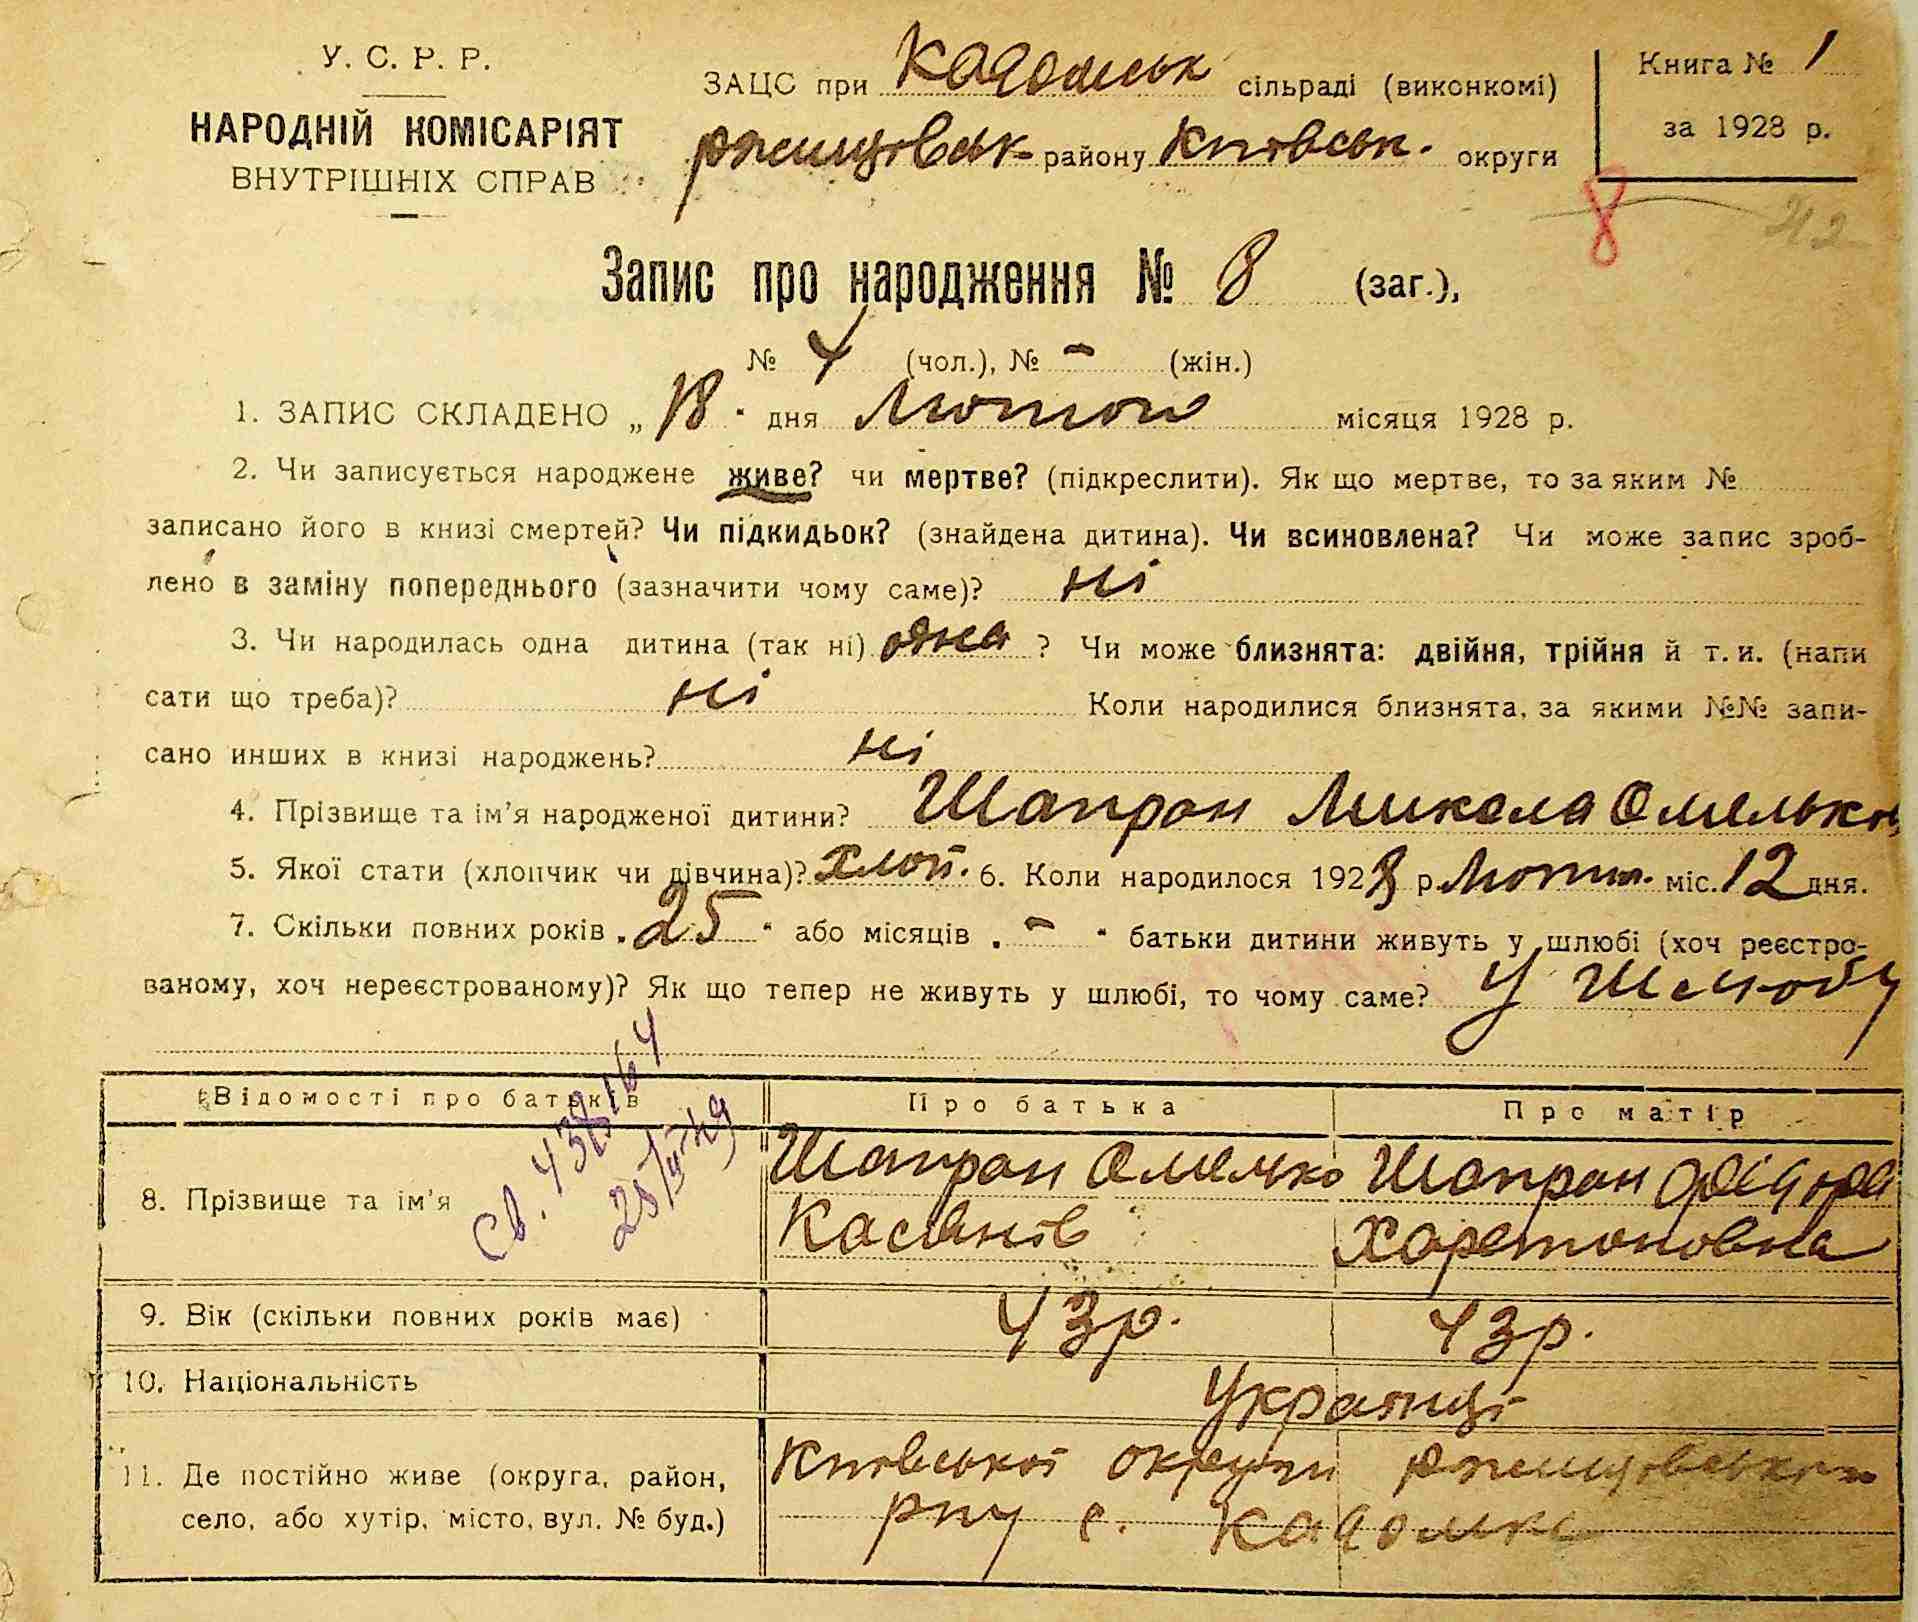 У. С. Р. Р.
НАРОДНІЙ КОМІСАРІЯТ
ВНУТРІШНІХ СПРАВ
ЗАЦС при Кадомськ сільраді (виконкомі)
ржищівськ району Київськ. округи
Книга № 1
за 1928 р.
8
42
Запис про народження № 8 (заг.),
№ 4 (чол.), № - (жін.)
1. ЗАПИС СКЛАДЕНО „ 18 " дня Лютого місяця 1928 р.
2. Чи записується народжене живе? чи мертве? (підкреслити). Як що мертве, то за яким №
записано його в книзі смертей? Чи підкидьок? (знайдена дитина). Чи всиновлена? Чи може запис зроб-
лено в заміну попереднього (зазначити чому саме)? ні
3. Чи народилась одна дитина (так ні) одна ? Чи може близнята: двійня, трійня й т. и. (напи
сати що треба)? ні Коли народилися близнята, за якими №№ запи-
сано инших в книзі народжень? ні
4. Прізвище та ім'я народженої дитини? Шапран Микола Омельков
5. Якої стати (хлопчик чи дівчина)? хлоп. 6. Коли народилося 1928 р Лютого міс. 12 дня.
7. Скільки повних років „ 25 " або місяців „ - " батьки дитини живуть у шлюбі (хоч реєстро-
ваному, хоч нереєстрованому)? Як що тепер не живуть у шлюбі, то чому саме? У Шлюбу
Відомості про батьків Про батька Про матір
8. Прізвище та ім'я Шапран Омелько Шапран Федора
Касянів Харетоновна
9. Вік (скільки повних років має) 43 р. 43 р.
10. Національність Українці
11. Де постійно живе (округа, район, Київської округи ржищівського
село, або хутір, місто, вул. № буд.) р-ну с. Кадомка